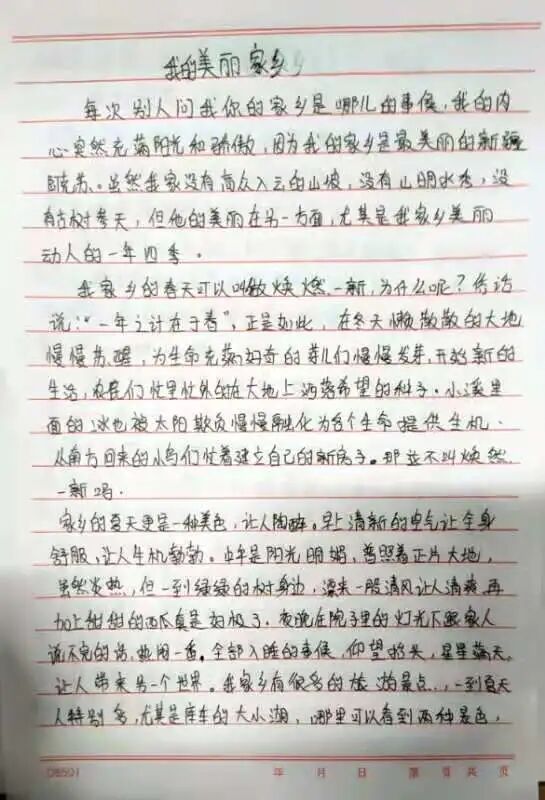 我的美丽家乡
每次别人问我你的家乡是哪儿的事候，我的内
心突然充满阳光和骄傲，因为我的家乡是最美丽的新疆
阿克苏。虽然我家没有高众入云的山坡，没有山明水秀，没
有古树参天，但他的美丽在另一方面，尤其是我家乡美丽
动人的一年四季。
我家乡的春天可以叫做焕燃一新，为什么呢？俗话
说："一年之计在于春"，正是如此，在冬天懒散散的大地
慢慢苏醒，为生命充满好奇的芽儿们慢慢发芽，开始新的
生活，农民们忙里忙外的在大地上洒落希望的种子。小溪里
面的冰也被太阳欺负慢慢融化为各个生命提供生机．
从南方回来的小鸟们忙着建立自己的新房子。那并不叫焕然
一新吗．
家乡的夏天更是一种美色，让人陶醉。早上清新的空气让全身
舒服，让人生机勃勃。中午是阳光明媚，普照着正片大地，
虽然炎热，但一到绿绿的树身边，漂来一股清风让人清爽，再
加上甜甜的西瓜真是好极了．夜晚在院子里的灯光下跟家人
说不完的话，热闹一番。全部入睡的事候，仰望抬头，星星满天，
让人带来另一个世界。我家乡有很多的旅游景点．，一到夏天
人特别多，尤其是库车的大小湖，哪里可以看到两种景色，
年 月 日 第 页 共 页